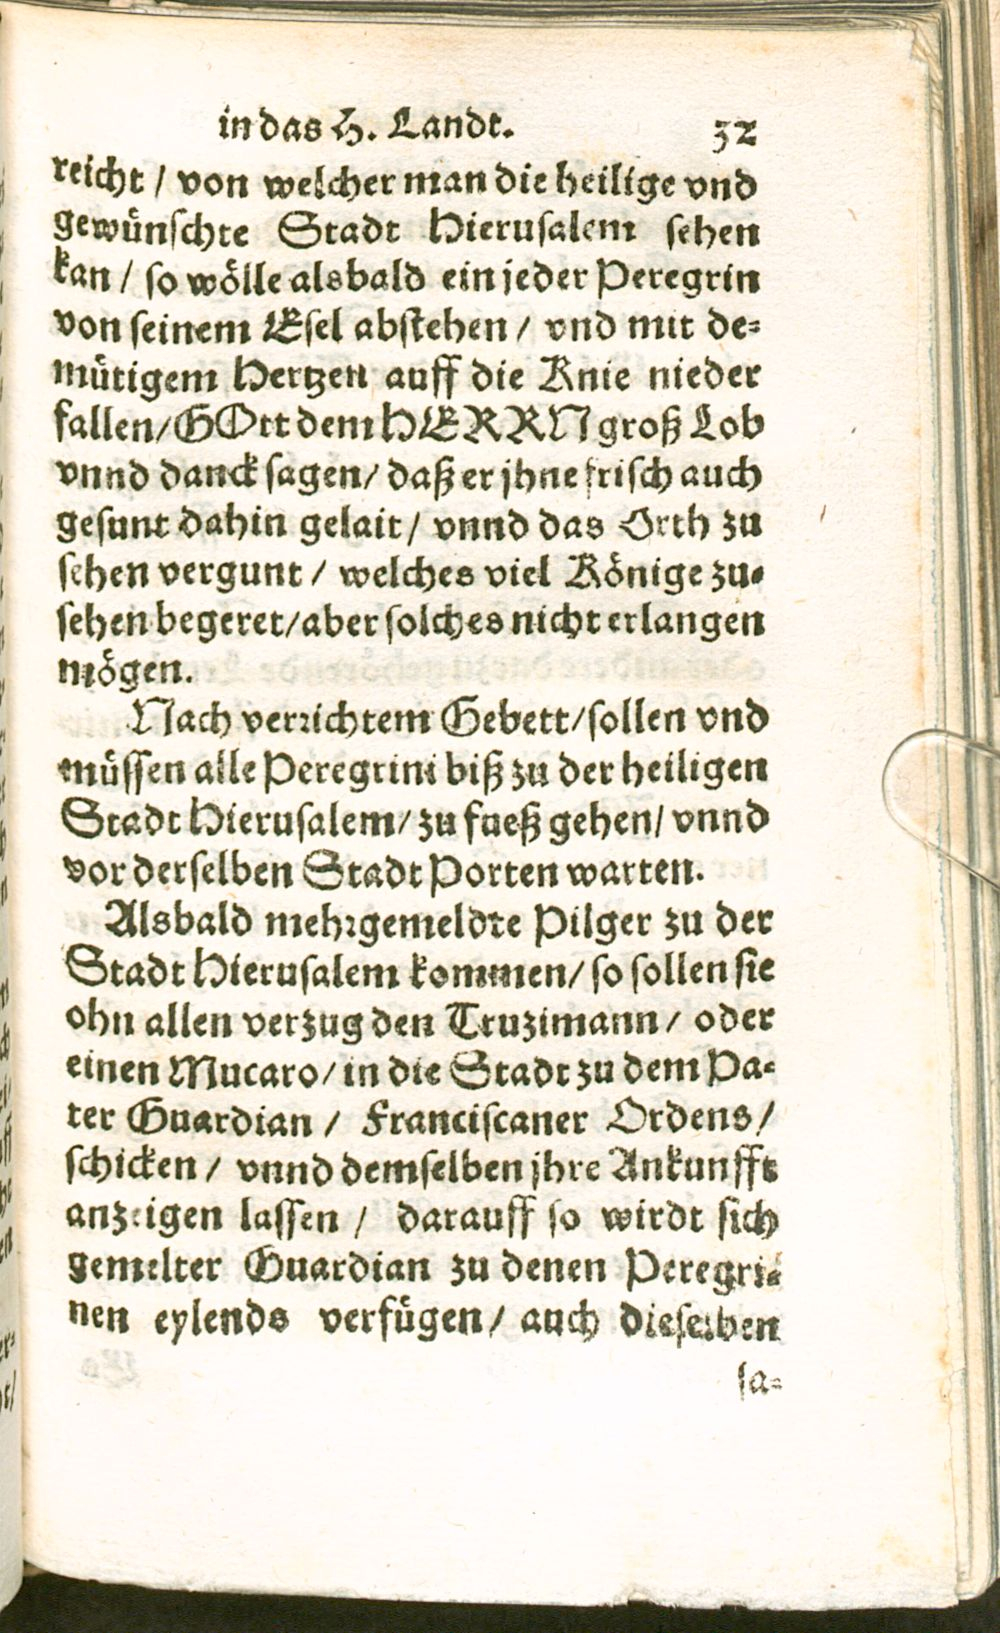 in das H. Landt. 32
reicht / von welcher man die heilige vnd
gewünschte Stadt Hierusalem sehen
kan / so wölle alsbald ein jeder Peregrin
von seinem Esel abstehen / vnd mit de=
mütigem Hertzen auff die Knie nieder
fallen/ GOtt dem HERRN groß Lob
vnnd danck sagen/ daß er jhne frisch auch
gesunt dahin gelait / vnnd das Orth zu
sehen vergunt / welches viel Könige zu=
sehen begeret/ aber solches nicht erlangen
mögen.
Nach verrichtem Gebett/ sollen vnd
müssen alle Peregrini biß zu der heiligen
Stadt Hierusalem/ zu fueß gehen/ vnnd
vor derselben Stadt Porten warten.
Alsbald mehrgemeldte Pilger zu der
Stadt Hierusalem kommen/ so sollen sie
ohn allen verzug den Truzimann / oder
einen Mucaro/ in die Stadt zu dem Pa=
ter Guardian / Franciscaner Ordens /
schicken / vnnd demselben jhre Ankunfft
anzeigen lassen / darauff so wirdt sich
gemelter Guardian zu denen Peregri=
nen eylends verfügen / auch dieselben
sa=